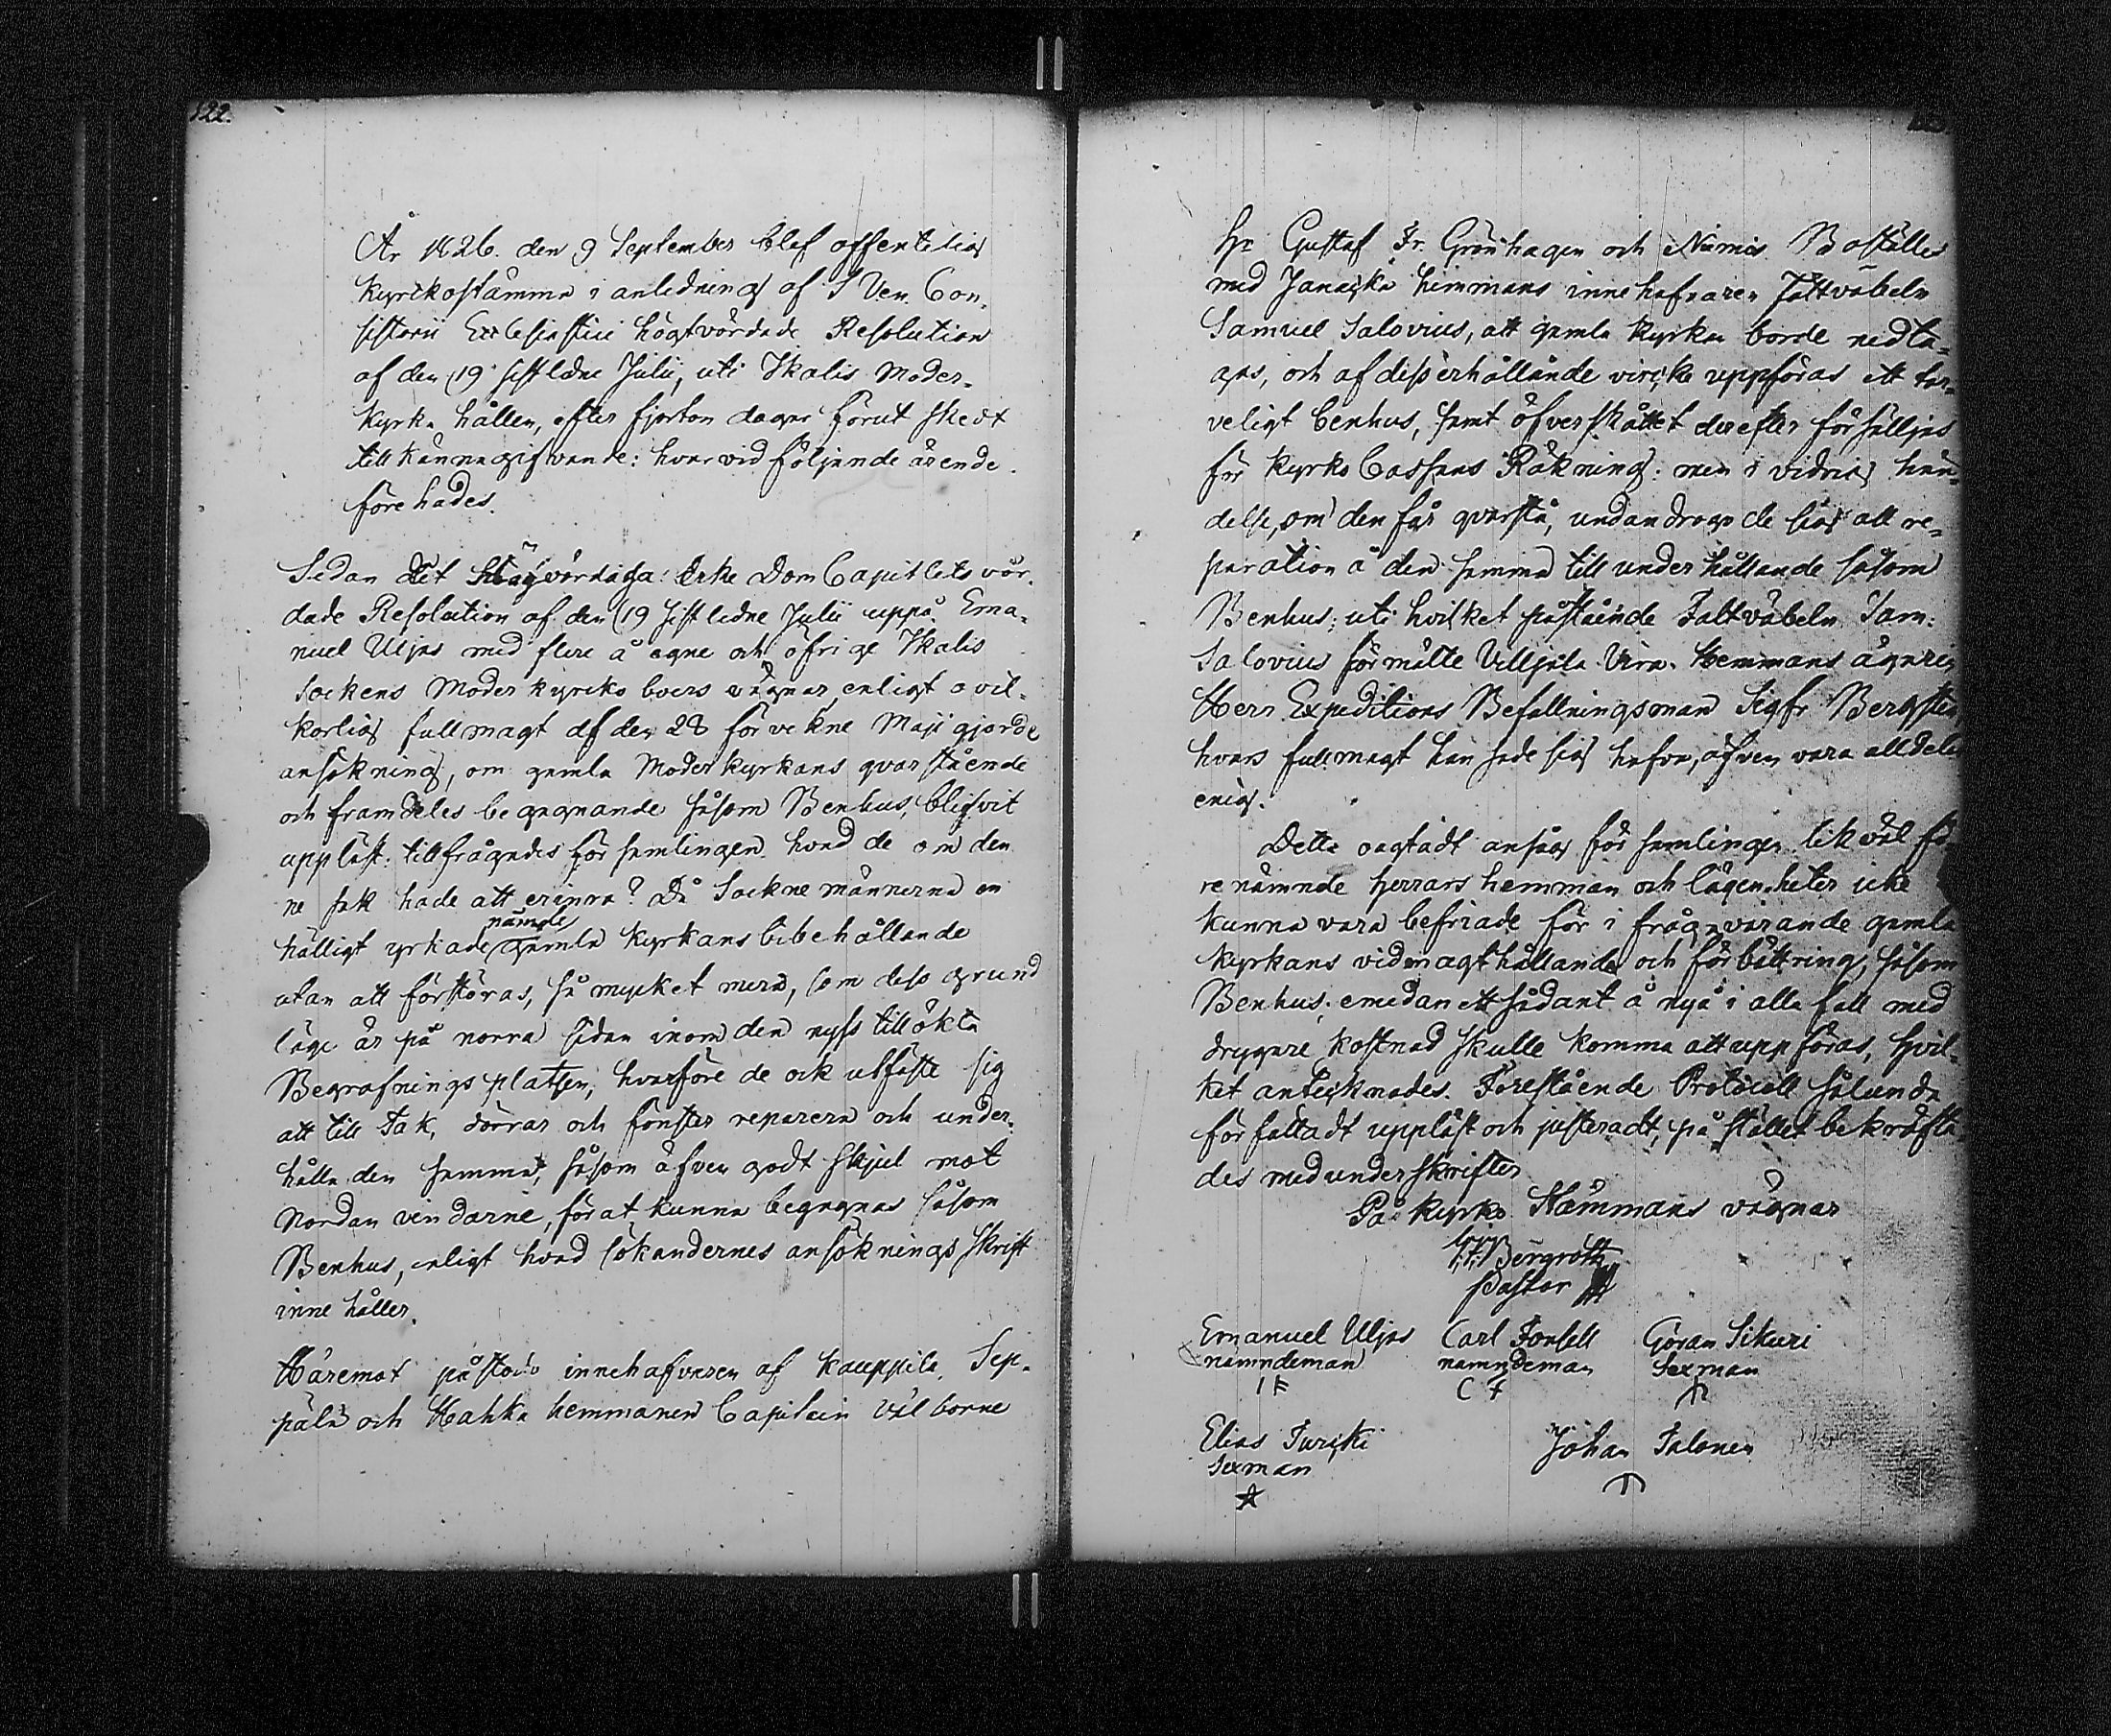 122.
År 1826. den 9 September blef offentelig
kyrkostämma i anledning af S Ven. Con-
sistorii Ecclesiastici högtvördade Resolution
af den 19 sistledne Julii, uti Ikalis Moder-
kyrka hållen, efter fjorton dagar förut skedt
tillkännagifvande: hvarvid följande ärende
förehades.
Sedan det Högvördiga Erke Dom Capitlets vör-
dade Resolution af den 19 sistledne Julii uppå Ema-
nuel Uljas med flere å egne och öfrige Ikalis
Sockens Moder kyrko boers vägnar, enligt ovil-
korlig fullmagt af den 28 förvekne Maji gjorde
ansökning, om gamla Moderkyrkans qvarstående
och framdeles begagnande såsom Benhus, blifvit
uppläst: tillfrågades församlingen hvad de om den
ne sak hade att erinra? Då Sockne männerna en
hälligt yrkade nämde gamla kyrkans bibehållande
utan att förstöras, så mycket mera, som dess grund
läge är på norra sidan inom den nyss tillökta
Begrafningsplatsen, hvarföre de ock utfäste sig
att till Tak, dörrar och fönster reparera och under-
hålla den samma, såsom äfven godt skjul mot
Nordan vindarne, för at kunna begagnas såsom
Benhus, enligt hvad sökandernes ansöknings skrift
inne håller.
Häremot påstodo innehafvaren af Kauppila, Sep-
pälä och Hahka hemmanen Capitain välborne
Hr Gustaf Fr. Grönhagen och Niemis Boställes
med Janackä hemmans innehafvaren Fältväbeln
Samuel Salovius, att gamla kyrkan borde nedta-
gas, och af dess erhållande virke uppföras ett tar-
veligt benhus, samt öfverskottet derefter försäljas
för Kyrko Cassans Räkning: men i vidrig hän-
delse, om den får qvarstå, undandrogo de sig all re-
paration å den samma till underhållande såsom
Benhus; uti hvilket påstående Faltväbeln Sam:
Salovius förmälte Villjala Vira Hemmans ägaren
Herr Expeditions Befallningsman Sigfr Bergsten
hvars fullmagt han sade sig hafva, äfven vara alldeles
enig.
Detta oagtadt ansåg församlingen likväl fö-
renämnde herrars hemman och lägenheter icke
kunna vara befriade för i fråga varande gamla
kyrkans vidmagthållande och förbättring, såsom
Benhus; emedan ett sådant å nyo i alla fall med
drygare kostnad skulle komma att uppföras, hvil-
ket antecknades. Förestående Protocoll sålunda
författadt uppläst och justeradt, på stället bekräfta-
des med underskrifter
På kyrko Stämmans vägnar
Bergroth
Pastor
Emanuel Uljas Carl Forsell Göran Sikuri
nämndeman nämndeman Sexman
C F
Elias Turcki Johan Talonen
Sexman